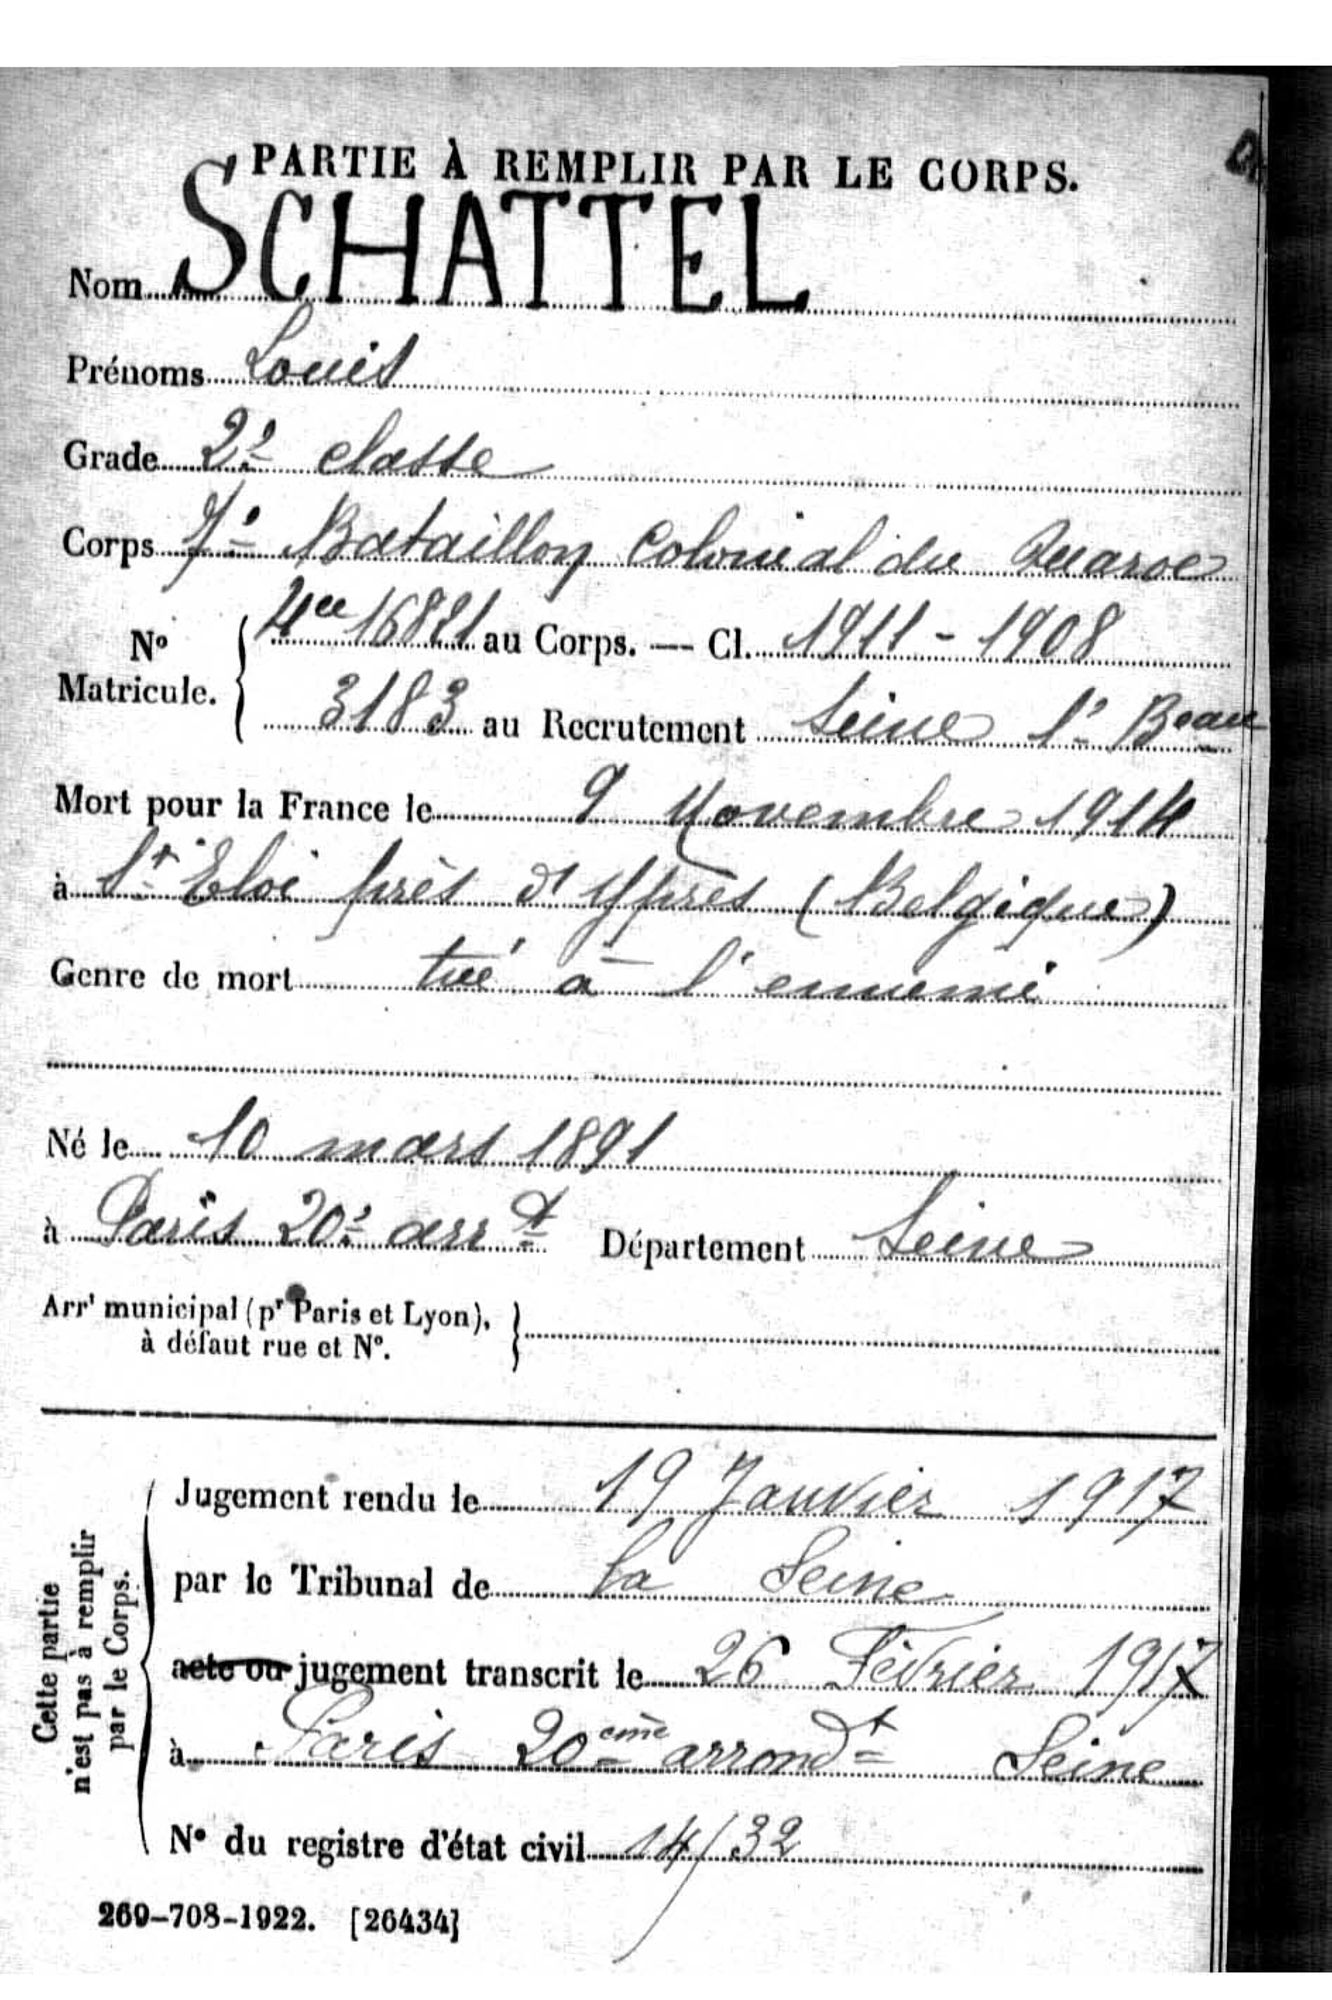 PARTIE À REMPLIR PAR LE CORPS.
Nom SCHATTEL
Prénoms Louis
Grade 2e classe
Corps 7e Bataillon Colonial du Maroc
No Matricule. 4ce 16821 au Corps. — Cl. 1911 - 1908
3183 au Recrutement Seine 1er Beau
Mort pour la France le 9 Novembre 1914
à St Eloi près d'Ypres (Belgique)
Genre de mort tué à l'ennemi
Né le 10 mars 1891
à Paris 20e arrdt Département Seine
Arrt municipal (pr Paris et Lyon), à défaut rue et No.
Cette partie n'est pas à remplir par le Corps.
Jugement rendu le 19 Janvier 1917
par le Tribunal de la Seine
acte ou jugement transcrit le 26 Février 1917
à Paris 20eme arrondt Seine
No du registre d'état civil 14/32
269-708-1922. [26434]